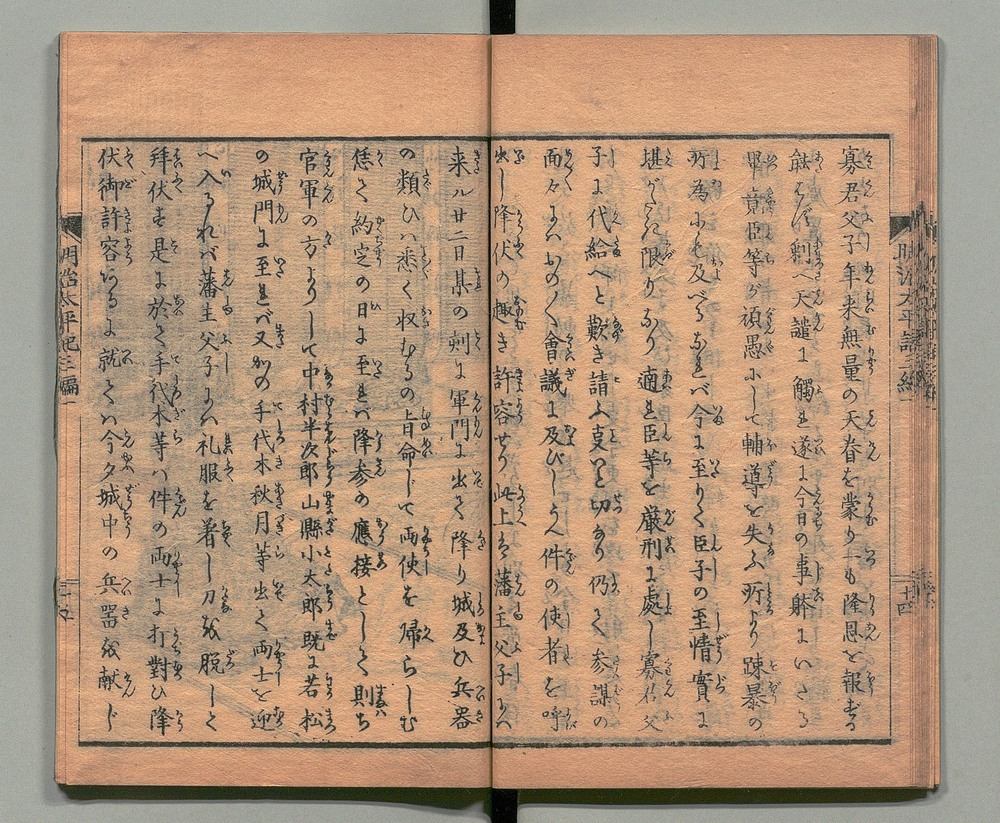 寡君父子年来無量の天眷を蒙りしも隆恩を報ずる
能はず剰へ天譴に觸れ遂に今日の事躰にいたる
畢竟臣等が頑愚にして輔導を失ふ所より疎暴の
所為小も及べるなれば今に至りて臣子の至情實に
堪がたき限りなり適を臣等を厳刑に處し寡君父
子に代給へと歎き請ふ哀を切なり仍て参謀の
面々にはおの〳〵會議に及びしうへ件の使者を呼
出し降伏の趣き許容せり此上は藩主父子には
来ル廿二日某の刻に軍門に出て降り城及ひ兵器
の類ひハ悉く収むるの旨命じて両使を帰らしむ
恁て約定の日に至れバ降参の應接として則ち
官軍の方よりして中村半次郎山縣小太郎既に若松
の城門に至れバ又かの手代木秋月等出て両士を迎
へ入るれバ藩主父子には礼服を着し刀を脱して
拜伏す是に於て手代木等ハ件の両士に打對ひ降
伏御許容なるに就てハ今夕城中の兵器を献じ
明治太平記三編